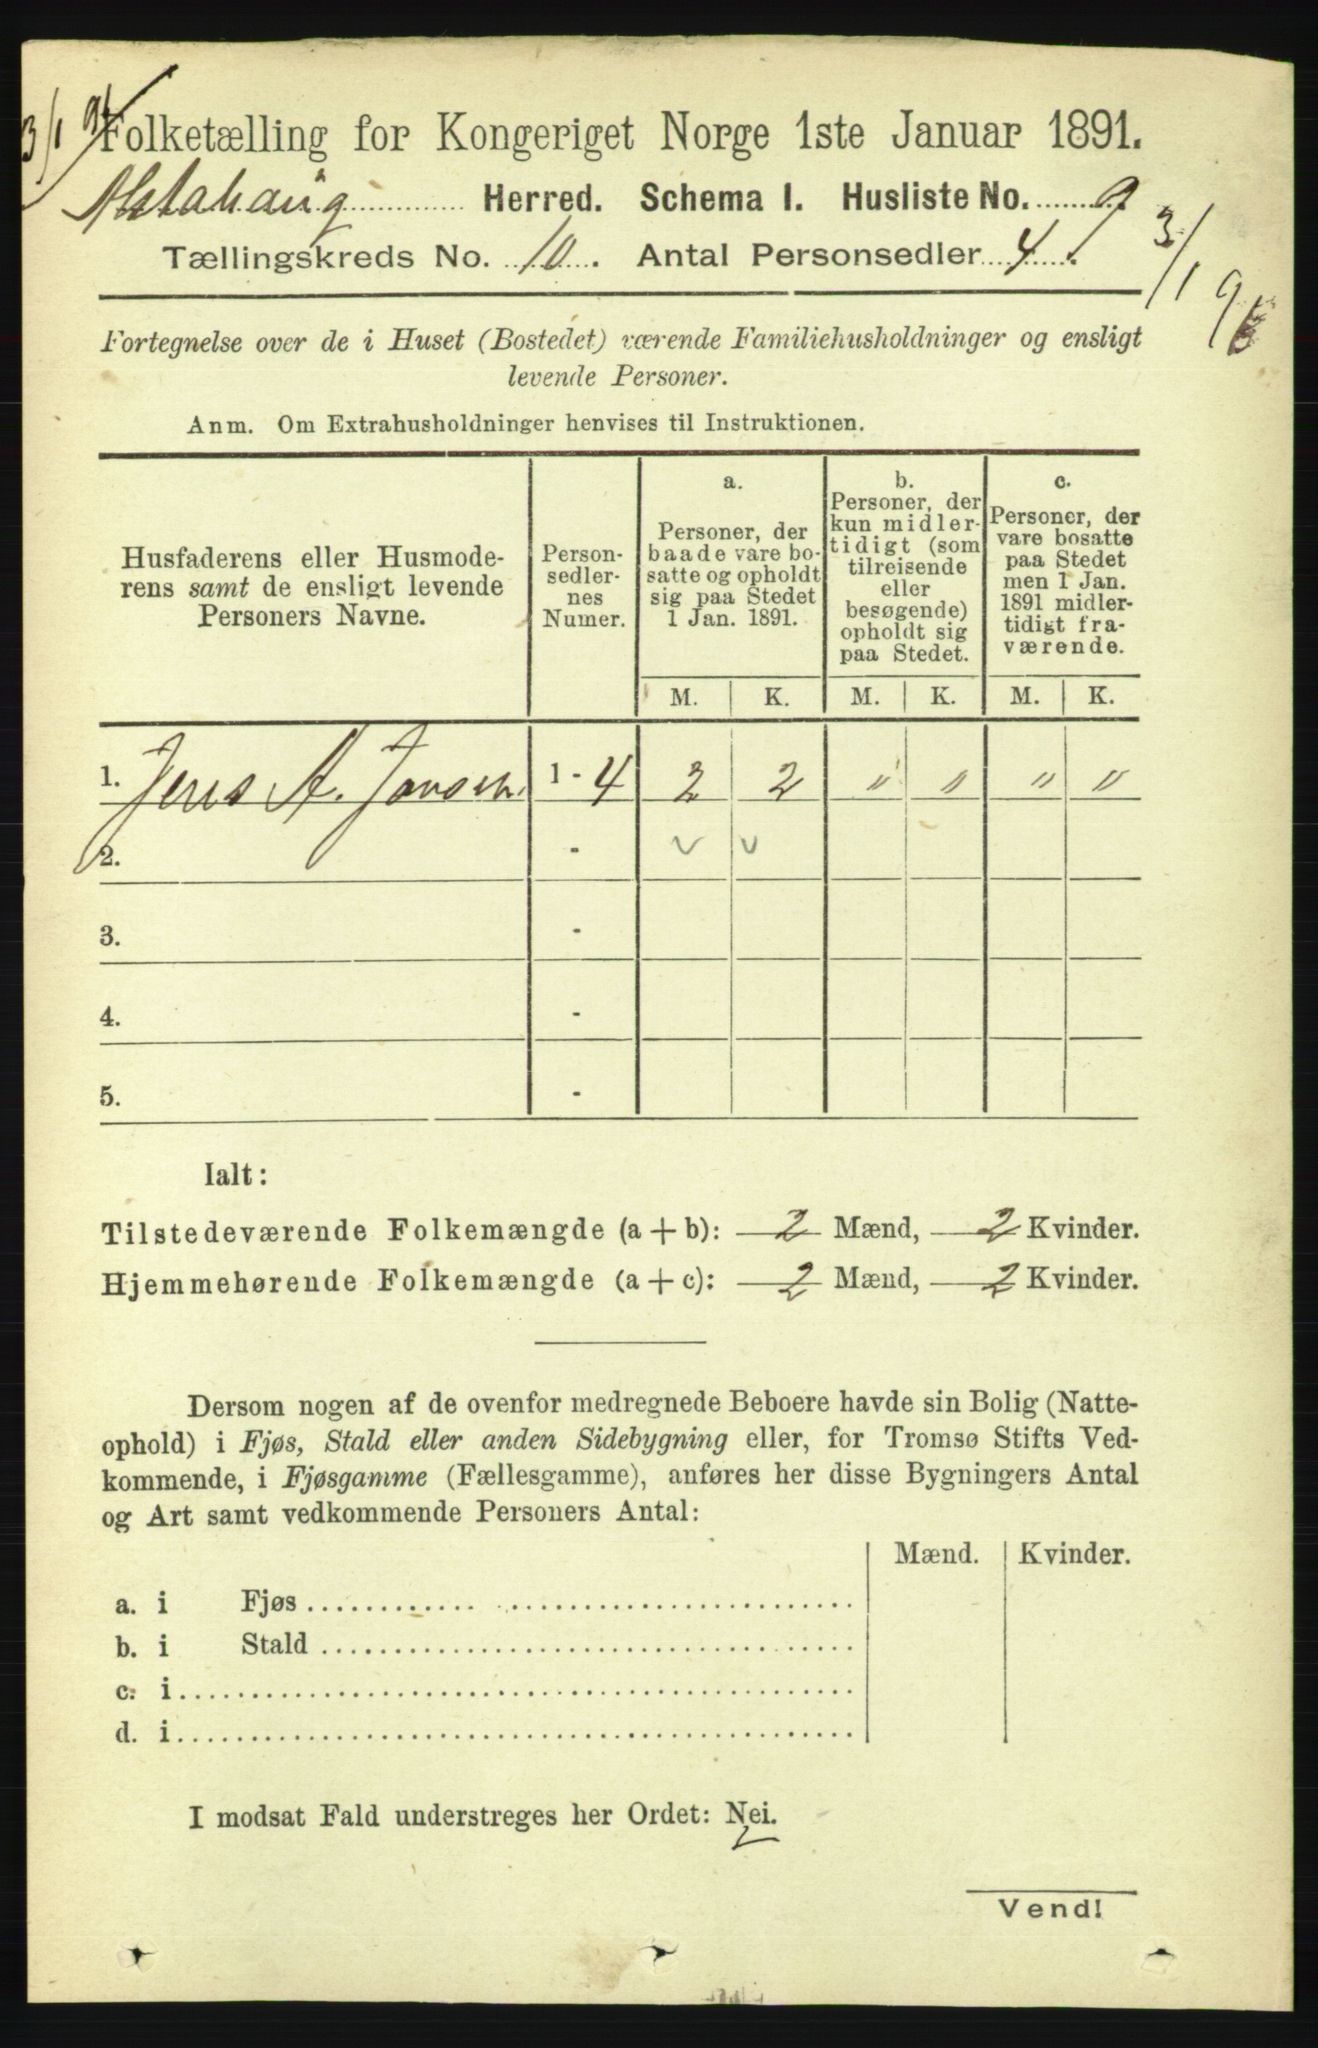 3/1 91
Folketælling for Kongeriget Norge 1ste Januar 1891.
Alstahaug Herred. Schema I. Husliste No. 9
Tællingskreds No. 10. Antal Personsedler 4.
3/1 91
Fortegnelse over de i Huset (Bostedet) værende Familiehusholdninger og ensligt
levende Personer.
Anm. Om Extrahusholdninger henvises til Instruktionen.
Husfaderens eller Husmode-
rens samt de ensligt levende
Personers Navne.
Person-
sedler-
nes
Numer.
a.
Personer, der
baade vare bo-
satte og opholdt
sig paa Stedet
1 Jan. 1891.
b.
Personer, der
kun midler-
tidigt (som
tilreisende
eller
besøgende)
opholdt sig
paa Stedet.
c.
Personer, der
vare bosatte
paa Stedet
men 1 Jan.
1891 midler-
tidigt fra-
værende.
M. K. M. K. M. K.
1. Jens A. Jensen. 1 - 4 2 2 " " " "
2. - v v
3. -
4. -
5. -
Ialt:
Tilstedeværende Folkemængde (a + b): 2 Mænd, 2 Kvinder.
Hjemmehørende Folkemængde (a + c): 2 Mænd, 2 Kvinder.
Dersom nogen af de ovenfor medregnede Beboere havde sin Bolig (Natte-
ophold) i Fjøs, Stald eller anden Sidebygning eller, for Tromsø Stifts Ved-
kommende, i Fjøsgamme (Fællesgamme), anføres her disse Bygningers Antal
og Art samt vedkommende Personers Antal:
Mænd. Kvinder.
a. i Fjøs
b. i Stald
c. i
d. i
I modsat Fald understreges her Ordet: Nei.
Vend!